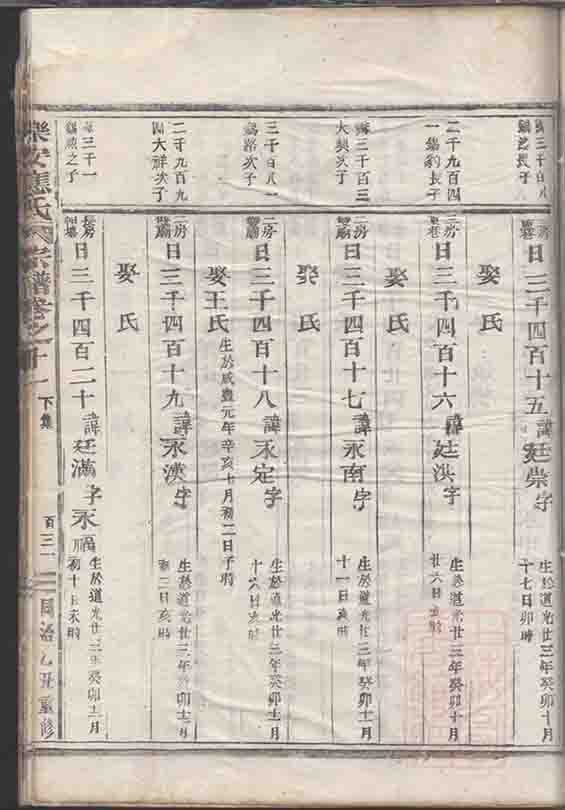 長子
日三千四百十五諱廷崇字
生於道光廿三年癸卯十月
十七日卯時
娶氏
二千九百四
一錫豹長子
日三千四百十六諱廷洪字
生於道光廿三年癸卯十月
廿六日亥時
娶氏
三千百三
大興次子
二房
日三千四百十七諱永南字
生於道光廿三年癸卯十一月
十一日亥時
娶氏
三千百八一
次子
二房
日三千四百十八諱永定字
生於道光廿三年癸卯十一月
十六日亥時
娶王氏
生於咸豊元年辛亥七月初二日子時
二千九百九
四大祥次子
二房
日三千四百十九諱永漢字
生於道光廿三年癸卯十二月
初二日亥時
娶氏
三千一
之子
長房
日三千四百二十諱廷滿字永福
生於道光廿三年癸卯十二月
初十日亥時
樂安應氏宗譜卷之十一
下集
百三一
同治乙丑重修